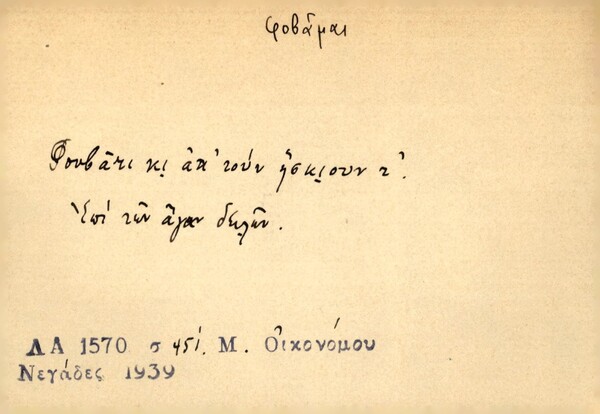 φοβᾶμαι
Φουβᾶτι κι̯ ἀπ' τοὺν ἥσκι̯ουν τ'.
Ἐπὶ τῶν ἄγαν δειλῶν.
ΛΑ 1570 σ 451. Μ. Οἰκονόμου
Νεγάδες 1939